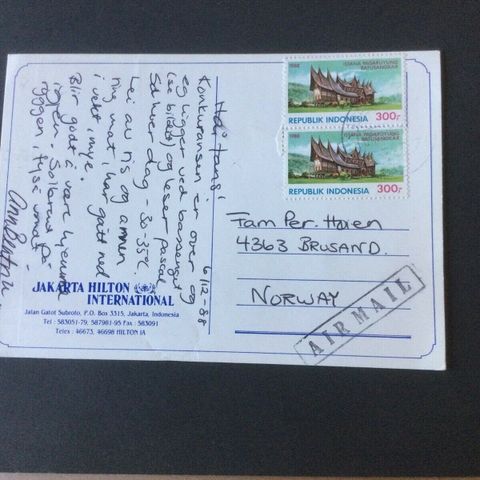 6/12-88
Hei tansi
Konkuransen er over og
eg ligger ved bassenget
(se bildet) og leser pascal
Sol hver dag - 30-35°C.
Lei av ris og annen
mat, har gått ned
i vekt, mye.
Blir godt å være hjemme
igjen. Solbrend på
ryggen,
1988 ISTANA PAGARUYUNG
BATUSANGKAR
REPUBLIK INDONESIA 300,-
1988 ISTANA PAGARUYUNG
BATUSANGKAR
REPUBLIK INDONESIA 300,-
Fam Per.
4363 BRUSAND.
NORWAY
AIR MAIL
JAKARTA HILTON
INTERNATIONAL
Jalan Gatot Subroto, P.O. Box 3315, Jakarta, Indonesia
Tel : 583051-79, 587981-95 Fax : 583091
Telex : 46673, 46698 HILTON IA